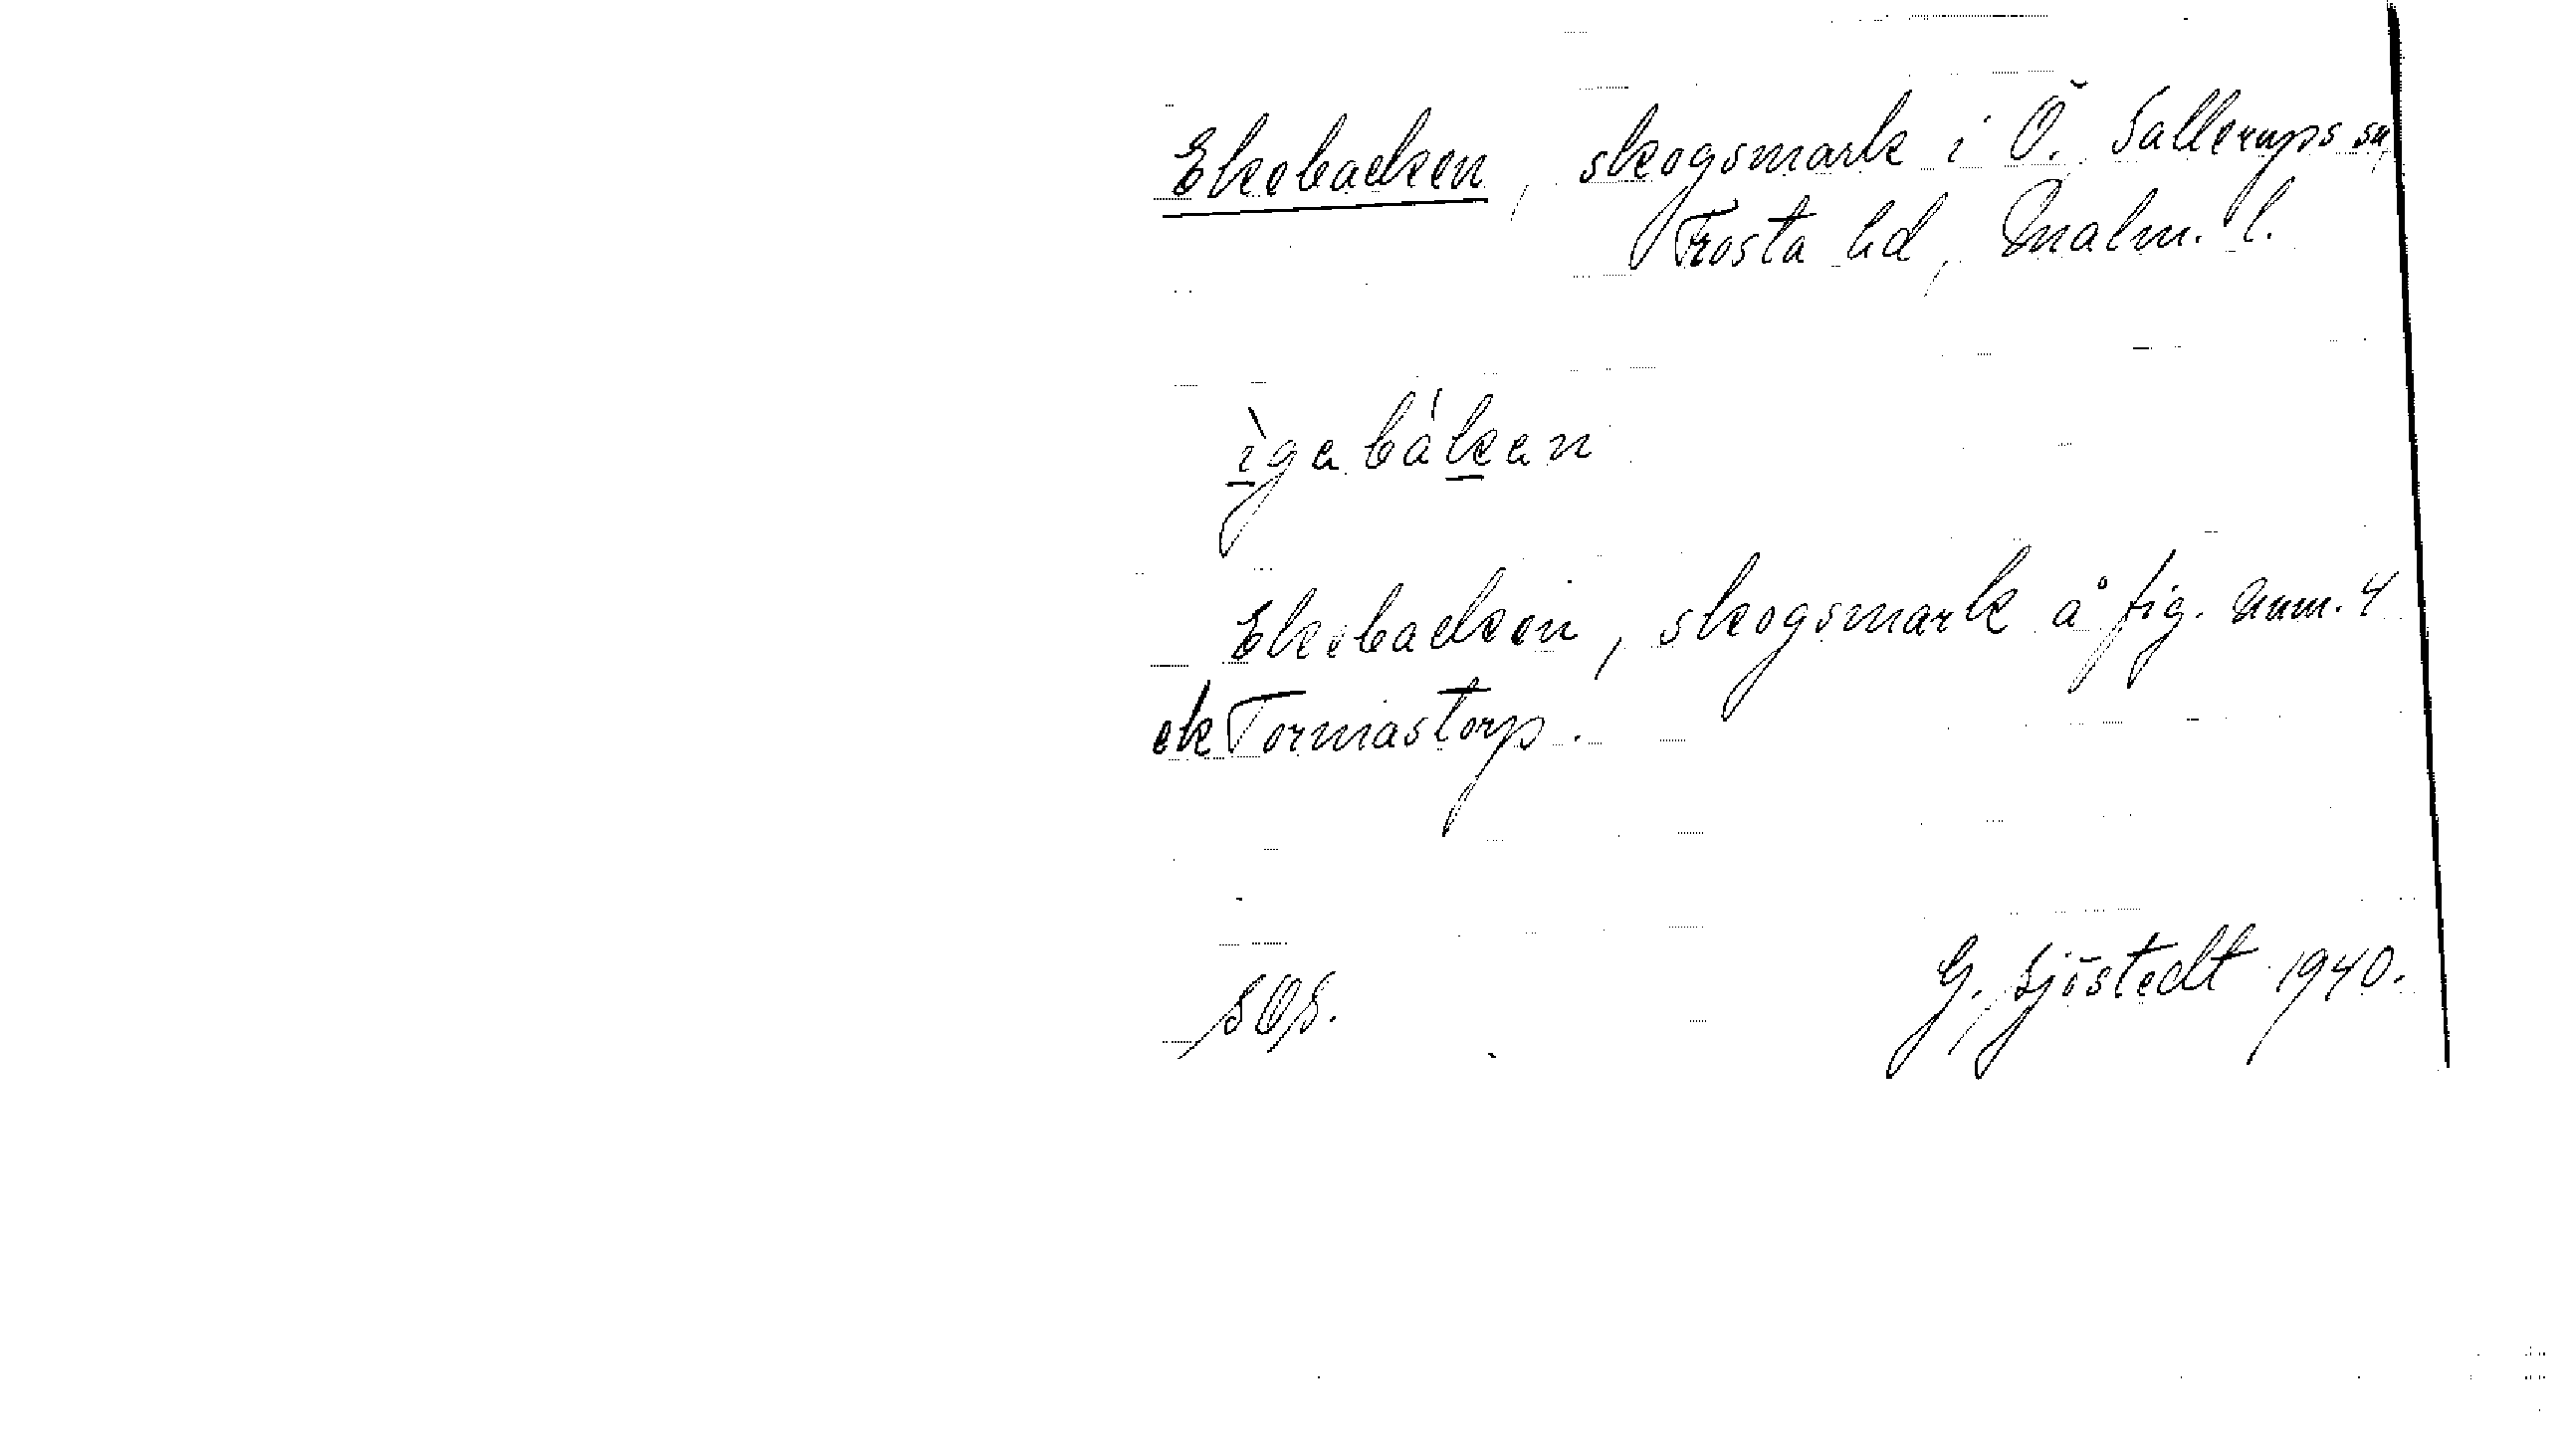 Ekebacken, skogsmark i Ö. Sallerups sn,
Frosta hd, Malm. l.
ìgabákan
Ekebacken, skogsmark å fig. num. 4
ek Tormastorp.
SOS.
G. Sjöstedt 1940.